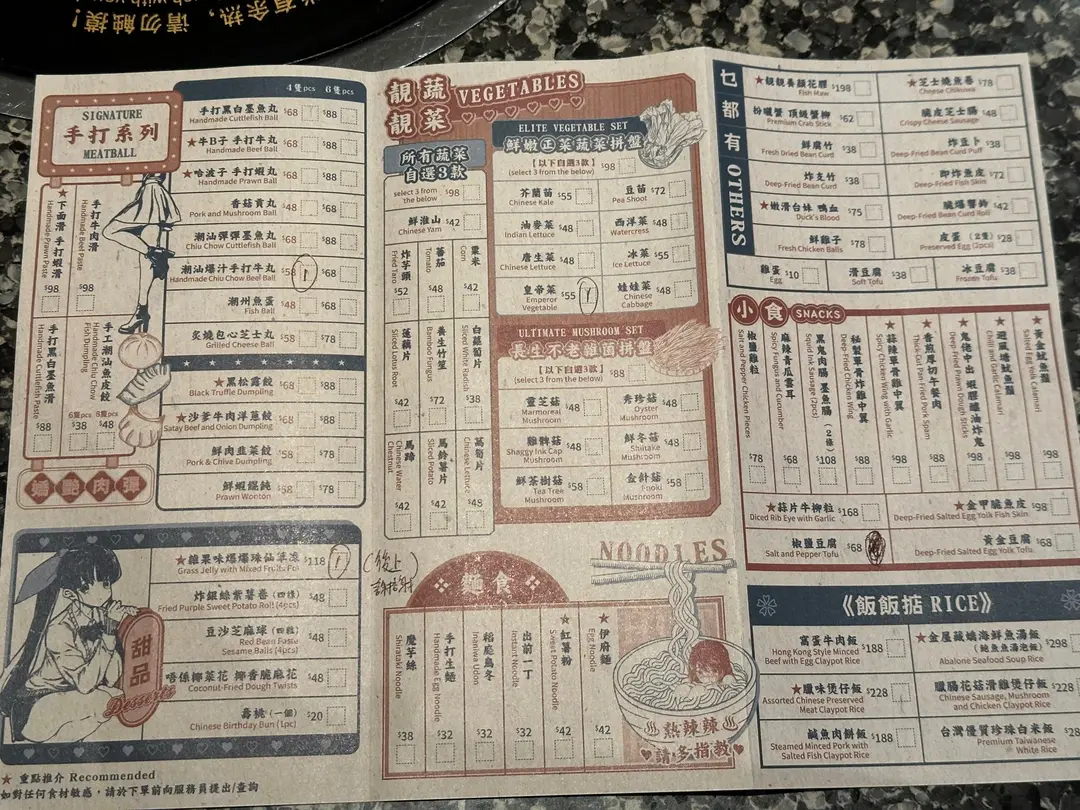 请勿触摸!
当有余热,
SIGNATURE
手打系列
MEATBALL
★下面滑 手打蝦滑
Handmade Prawn Paste
$98
手打牛肉滑
Handmade Beef Paste
$98
手打黑白墨魚滑
Handmade Cuttlefish Paste
$88
手工潮汕魚皮餃
Handmade Chiu Chow Fish Dumpling
6隻pcs 8隻pcs
$38 $48
婚艷肉彈
4隻pcs 6隻pcs
手打黑白墨魚丸 $68 $88
Handmade Cuttlefish Ball
★牛B子 手打牛丸 $68 $88
Handmade Beef Ball
★哈波子 手打蝦丸 $68 $88
Handmade Prawn Ball
香菇貢丸 $48 $68
Pork and Mushroom Ball
潮汕彈彈墨魚丸 $68 $88
Chiu Chow Cuttlefish Ball
潮汕爆汁手打牛丸 $58 1 $68
Handmade Chiu Chow Beef Ball
潮州魚蛋 $48 $68
Fish Ball
炙燒包心芝士丸 $58 $78
Grilled Cheese Ball
★黑松露餃 $68 $88
Black Truffle Dumpling
★沙爹牛肉洋蔥餃 $68 $88
Satay Beef and Onion Dumpling
鮮肉韭菜餃 $58 $78
Pork & Chive Dumpling
鮮蝦餛飩 $58 $78
Prawn Wonton
甜品
Desserts
★雜果味爆爆珠仙草凍 $118 1
Grass Jelly with Mixed Fruits
炸銀絲紫薯卷 (四條) $48
Fried Purple Sweet Potato Roll (4pcs)
豆沙芝麻球 (四粒) $48
Red Bean Paste
Sesame Balls (4pcs)
唔係椰菜花 椰香脆麻花 $48
Coconut-Fried Dough Twists
壽桃 (一個) $20
Chinese Birthday Bun (1pc)
★ 重點推介 Recommended
如對任何食材敏感,請於下單前向服務員提出/查詢
靚蔬靚菜 VEGETABLES
所有蔬菜
自選3款
select 3 from
the below $98
鮮淮山 $42
Chinese Yam
炸芋頭
Fried Taro
$52
蕃茄
Tomato
$48
粟米
Corn
$42
蓮藕片
Sliced Lotus Root
$42
養生竹笙
Bamboo Fungus
$72
白蘿蔔片
Sliced White Radish
$38
馬蹄
Chinese Water Chestnut
$42
馬鈴薯片
Sliced Potato
$42
萵筍片
Chinese Lettuce
$48
ELITE VEGETABLE SET
鮮嫩正菜蔬菜拼盤
【以下自選3款】 $98
(select 3 from the below)
芥蘭苗 $55
Chinese Kale
豆苗 $72
Pea Shoot
油麥菜 $48
Indian Lettuce
西洋菜 $48
Watercress
唐生菜 $48
Chinese Lettuce
冰菜 $55
Ice Lettuce
皇帝菜 $55 1
Emperor
Vegetable
娃娃菜 $48
Chinese
Cabbage
ULTIMATE MUSHROOM SET
長生不老雜菌拼盤
【以下自選3款】 $88
(select 3 from the below)
靈芝菇 $48
Marmoreal
Mushroom
秀珍菇 $58
Oyster
Mushroom
雞髀菇 $48
Shaggy Ink Cap
Mushroom
鮮冬菇 $48
Shiitake
Mushroom
鮮茶樹菇 $58
Tea Tree
Mushroom
金針菇 $58
Mushroom
(後上
麵食
NOODLES
魔芋絲
Shirataki Noodle
$38
手打生麵
Handmade Egg Noodle
$32
稻庭烏冬
Inaniwa Udon
$32
出前一丁
Instant Noodle
$32
★紅薯粉
Sweet Potato Noodle
$42
★伊府麵
Egg Noodle
$42
熱辣辣
請多指教
乜都有 OTHERS
★靚靚養顏花膠 $198
Fish Maw
★芝士燒魚卷 $78
Cheese Chikuwa
扮曬蟹 頂級蟹柳 $62
Premium Crab Stick
脆皮芝士腸 $48
Crispy Cheese Sausage
鮮腐竹 $38
Fresh Dried Bean Curd
炸豆卜 $38
Deep-Fried Bean Curd Puff
炸支竹 $38
Deep-Fried Bean Curd
即炸魚皮 $72
Deep-Fried Fish Skin
★嫩滑台妹 鴨血 $75
Duck's Blood
脆爆響鈴 $42
Deep-Fried Bean Curd Roll
鮮雞子 $78
Fresh Chicken Balls
皮蛋 (2隻) $28
Preserved Egg (2pcs)
雞蛋 $10
Egg
滑豆腐 $38
Soft Tofu
冰豆腐 $38
Frozen Tofu
小食 SNACKS
椒鹽雞粒
Salt and Pepper Chicken Pieces
$78
麻辣青瓜雲耳
Spicy Fungus and Cucumber
$68
黑鬼肉腸 墨魚腸 (2條)
Squid Ink Sausage (2pcs)
$108
秘製單骨炸雞中翼
Deep-Fried Chicken Wing
$88
★蒜辣單骨雞中翼
Spicy Chicken Wing with Garlic
$98
★香煎厚切午餐肉
Thick-Cut Pan Fried Pork Spam
$88
Deep-Fried Prawn Dough Sticks
$98
★避風塘魷魚鬚
Chilli and Garlic Calamari
$98
★黃金魷魚鬚
Salted Egg Yolk Calamari
$98
★蒜片牛柳粒 $168
Diced Rib Eye with Garlic
★金甲脆魚皮 $98
Deep-Fried Salted Egg Yolk Fish Skin
椒鹽豆腐 $68
Salt and Pepper Tofu
黃金豆腐 $68
Deep-Fried Salted Egg Yolk Tofu
《飯飯掂 RICE》
窩蛋牛肉飯 $188
Hong Kong Style Minced
Beef with Egg Claypot Rice
★金屋藏嬌海鮮魚湯飯 $298
(鮑魚魚湯泡飯)
Abalone Seafood Soup Rice
★臘味煲仔飯 $228
Assorted Chinese Preserved
Meat Claypot Rice
臘腸花菇滑雞煲仔飯 $228
Chinese Sausage, Mushroom
and Chicken Claypot Rice
鹹魚肉餅飯 $188
Steamed Minced Pork with
Salted Fish Claypot Rice
台灣優質珍珠白米飯
Premium Taiwanese
White Rice